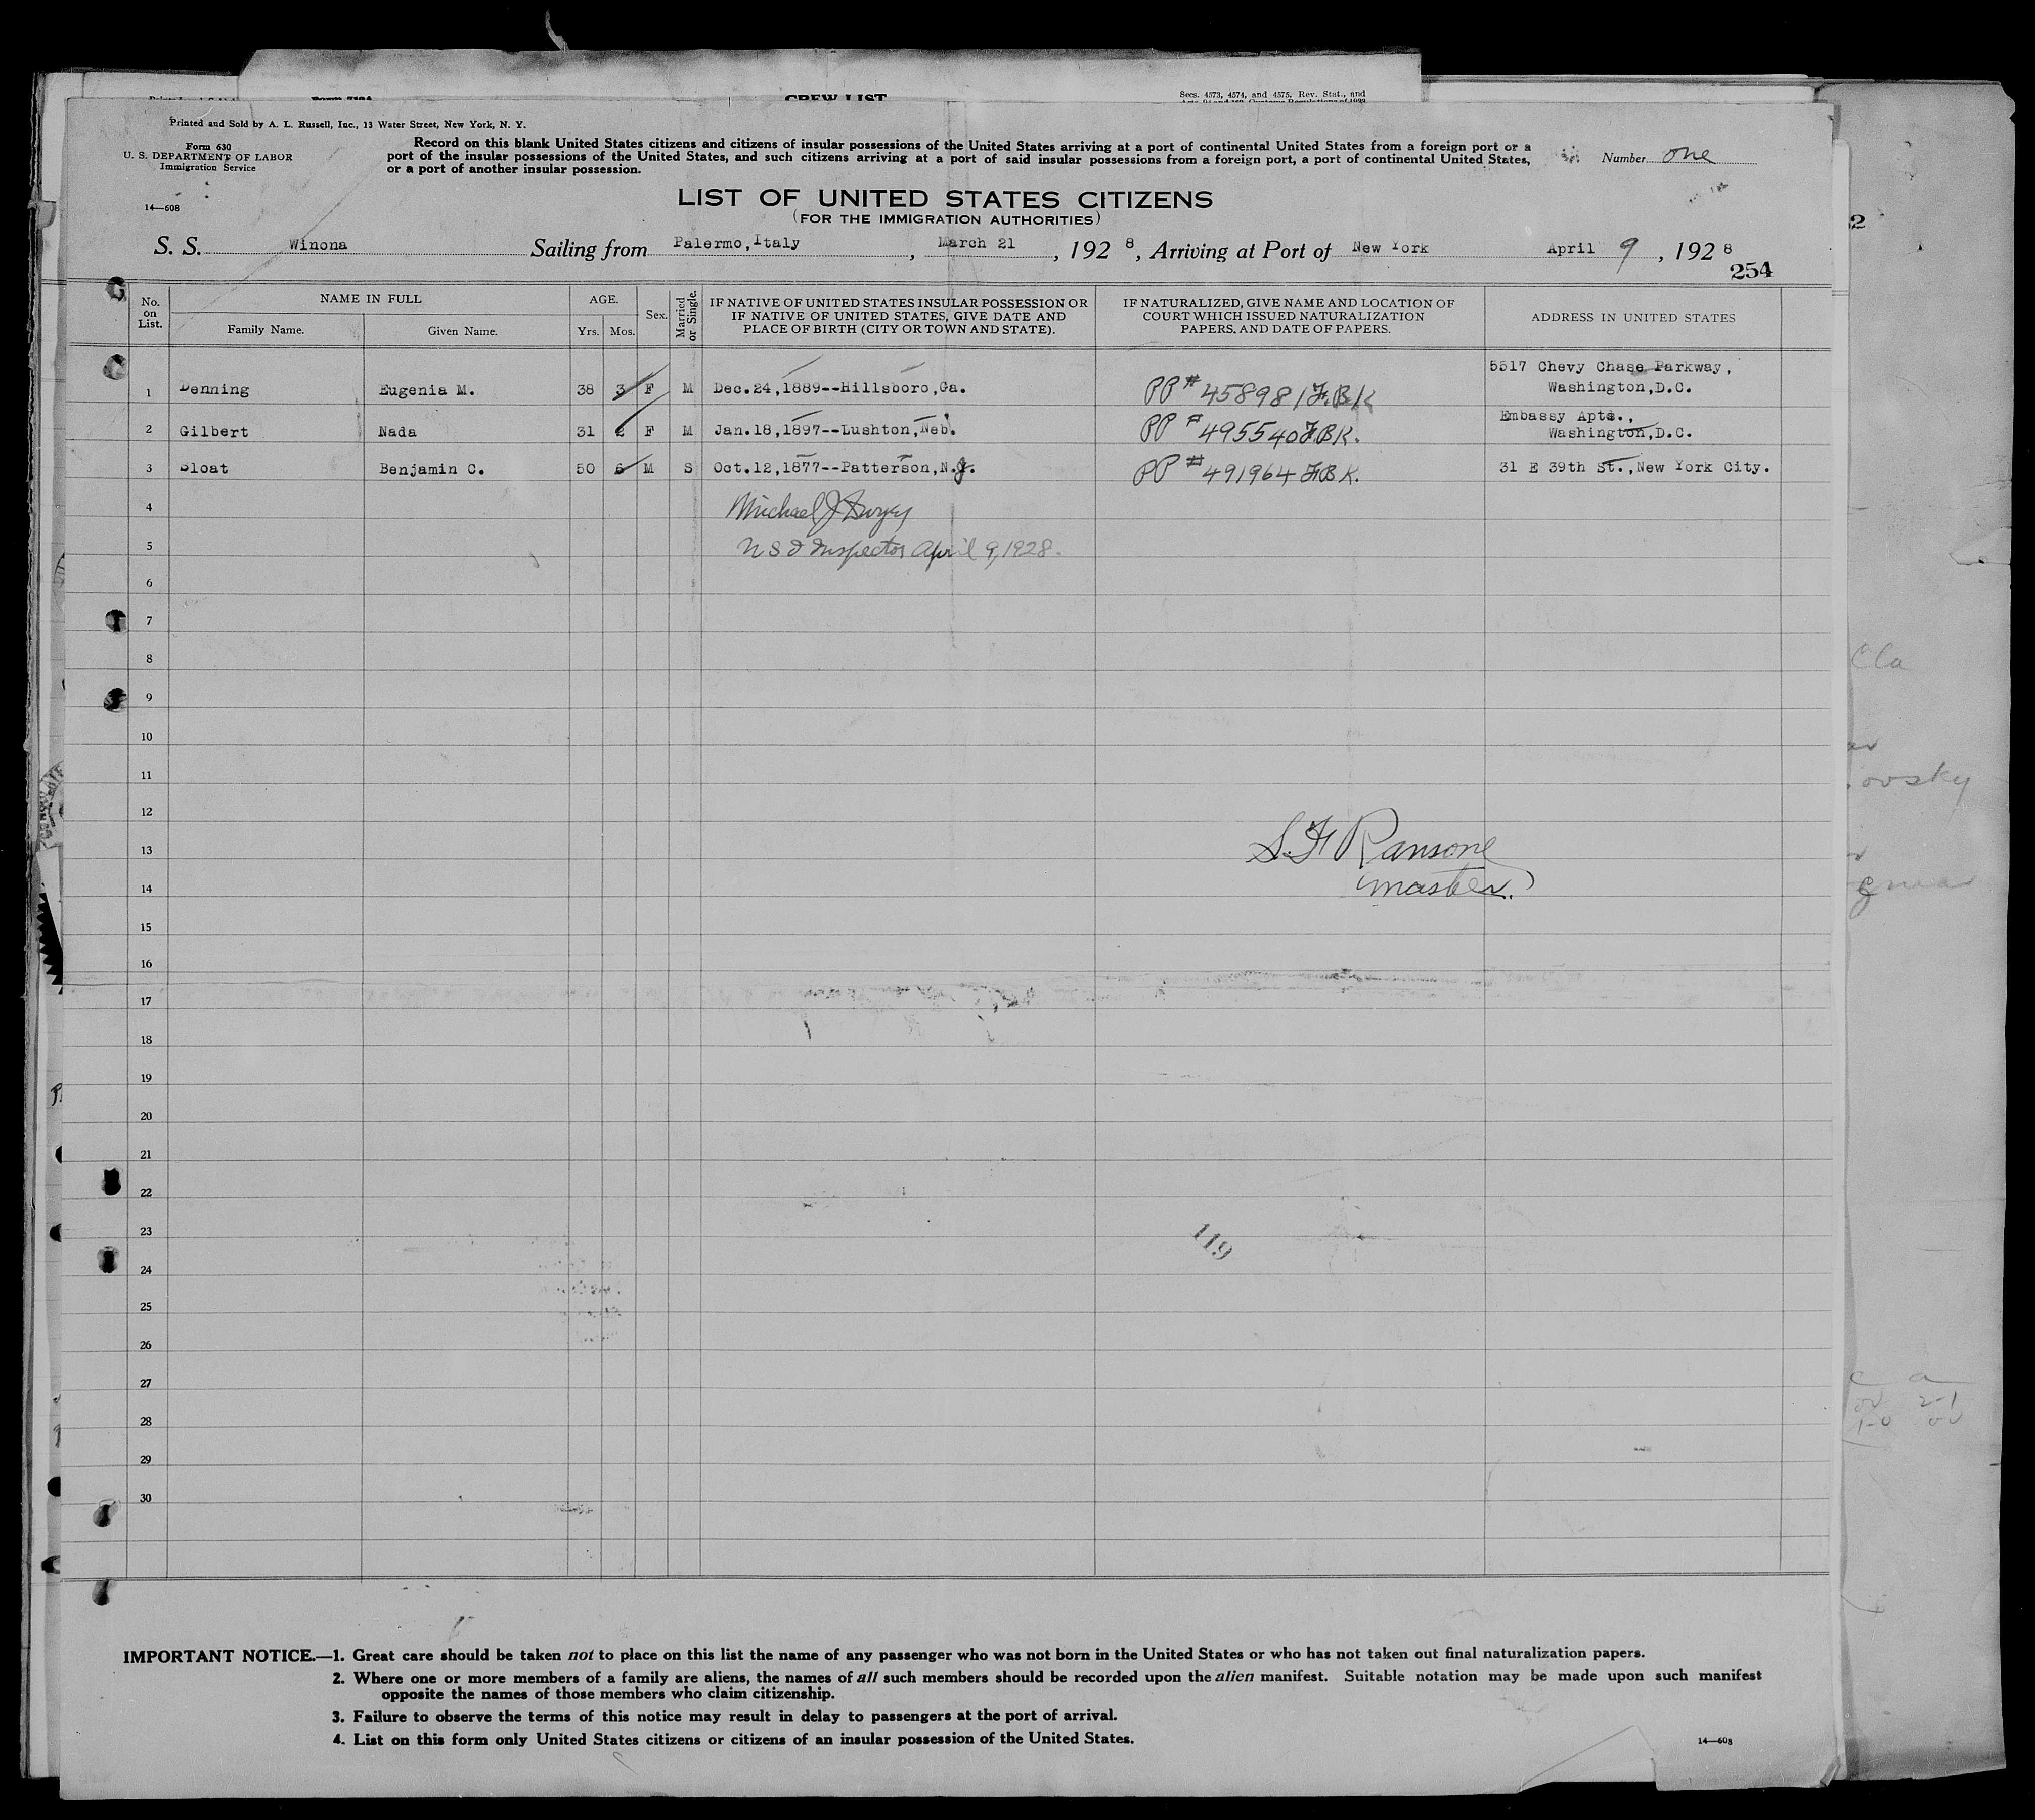 CREW LIST
Secs. 4573, 4574, and 4575, Rev. Stat., and
Printed and Sold by A. L. Russell, Inc., 13 Water Street, New York, N. Y.
Form 630
U. S. DEPARTMENT OF LABOR
Immigration Service
14—608
Record on this blank United States citizens and citizens of insular possessions of the United States arriving at a port of continental United States from a foreign port or a
port of the insular possessions of the United States, and such citizens arriving at a port of said insular possessions from a foreign port, a port of continental United States,
or a port of another insular possession.
Number one
LIST OF UNITED STATES CITIZENS
(FOR THE IMMIGRATION AUTHORITIES)
S. S. Winona Sailing from Palermo, Italy, March 21, 1928, Arriving at Port of New York April 9, 1928
254
No. on List.
NAME IN FULL
Family Name. Given Name.
AGE.
Yrs. Mos.
Sex.
Married or Single.
IF NATIVE OF UNITED STATES INSULAR POSSESSION OR
IF NATIVE OF UNITED STATES, GIVE DATE AND
PLACE OF BIRTH (CITY OR TOWN AND STATE).
IF NATURALIZED, GIVE NAME AND LOCATION OF
COURT WHICH ISSUED NATURALIZATION
PAPERS, AND DATE OF PAPERS.
ADDRESS IN UNITED STATES
5517 Chevy Chase Parkway,
1 Denning Eugenia M. 38 3 F M Dec.24,1889--Hillsboro,Ga. PP # 458981 F.B.K Washington,D.C.
Embassy Apts.,
2 Gilbert Nada 31 2 F M Jan.18,1897--Lushton,Neb. PP # 495540 F.B.K. Washington,D.C.
3 Sloat Benjamin C. 50 6 M S Oct.12,1877--Patterson,N.J. PP # 491964 F.B.K. 31 E 39th St.,New York City.
4 Michael J
5 U S I Inspector April 9, 1928.
6
7
8
9
10
11
12
13 S. F. Ransone
14 master.
15
16
17
18
19
20
21
22
23
119
24
25
26
27
28
29
30
IMPORTANT NOTICE.—1. Great care should be taken not to place on this list the name of any passenger who was not born in the United States or who has not taken out final naturalization papers.
2. Where one or more members of a family are aliens, the names of all such members should be recorded upon the alien manifest. Suitable notation may be made upon such manifest
opposite the names of those members who claim citizenship.
3. Failure to observe the terms of this notice may result in delay to passengers at the port of arrival.
4. List on this form only United States citizens or citizens of an insular possession of the United States.
14—608